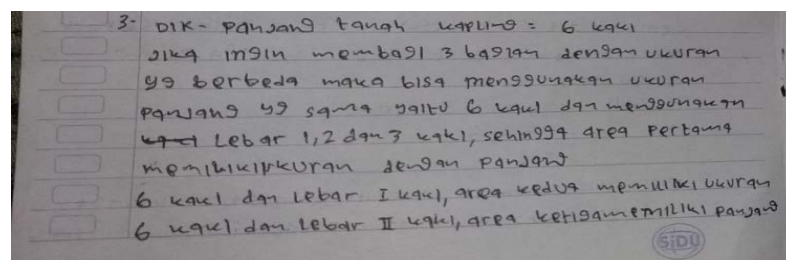 3- DIK - panjang tanah kapling = 6 kaki
jika ingin membagi 3 bagian dengan ukuran
yg berbeda maka bisa menggunakan ukuran
panjang yg sama yaitu 6 kaki dan menggunakan
lebar 1,2 dan 3 kaki, sehingga area pertama
memiliki ukuran dengan panjang
6 kaki dan lebar I kaki, area kedua memiliki ukuran
6 kaki dan lebar II kaki, area ketiga memiliki panjang
SiDU